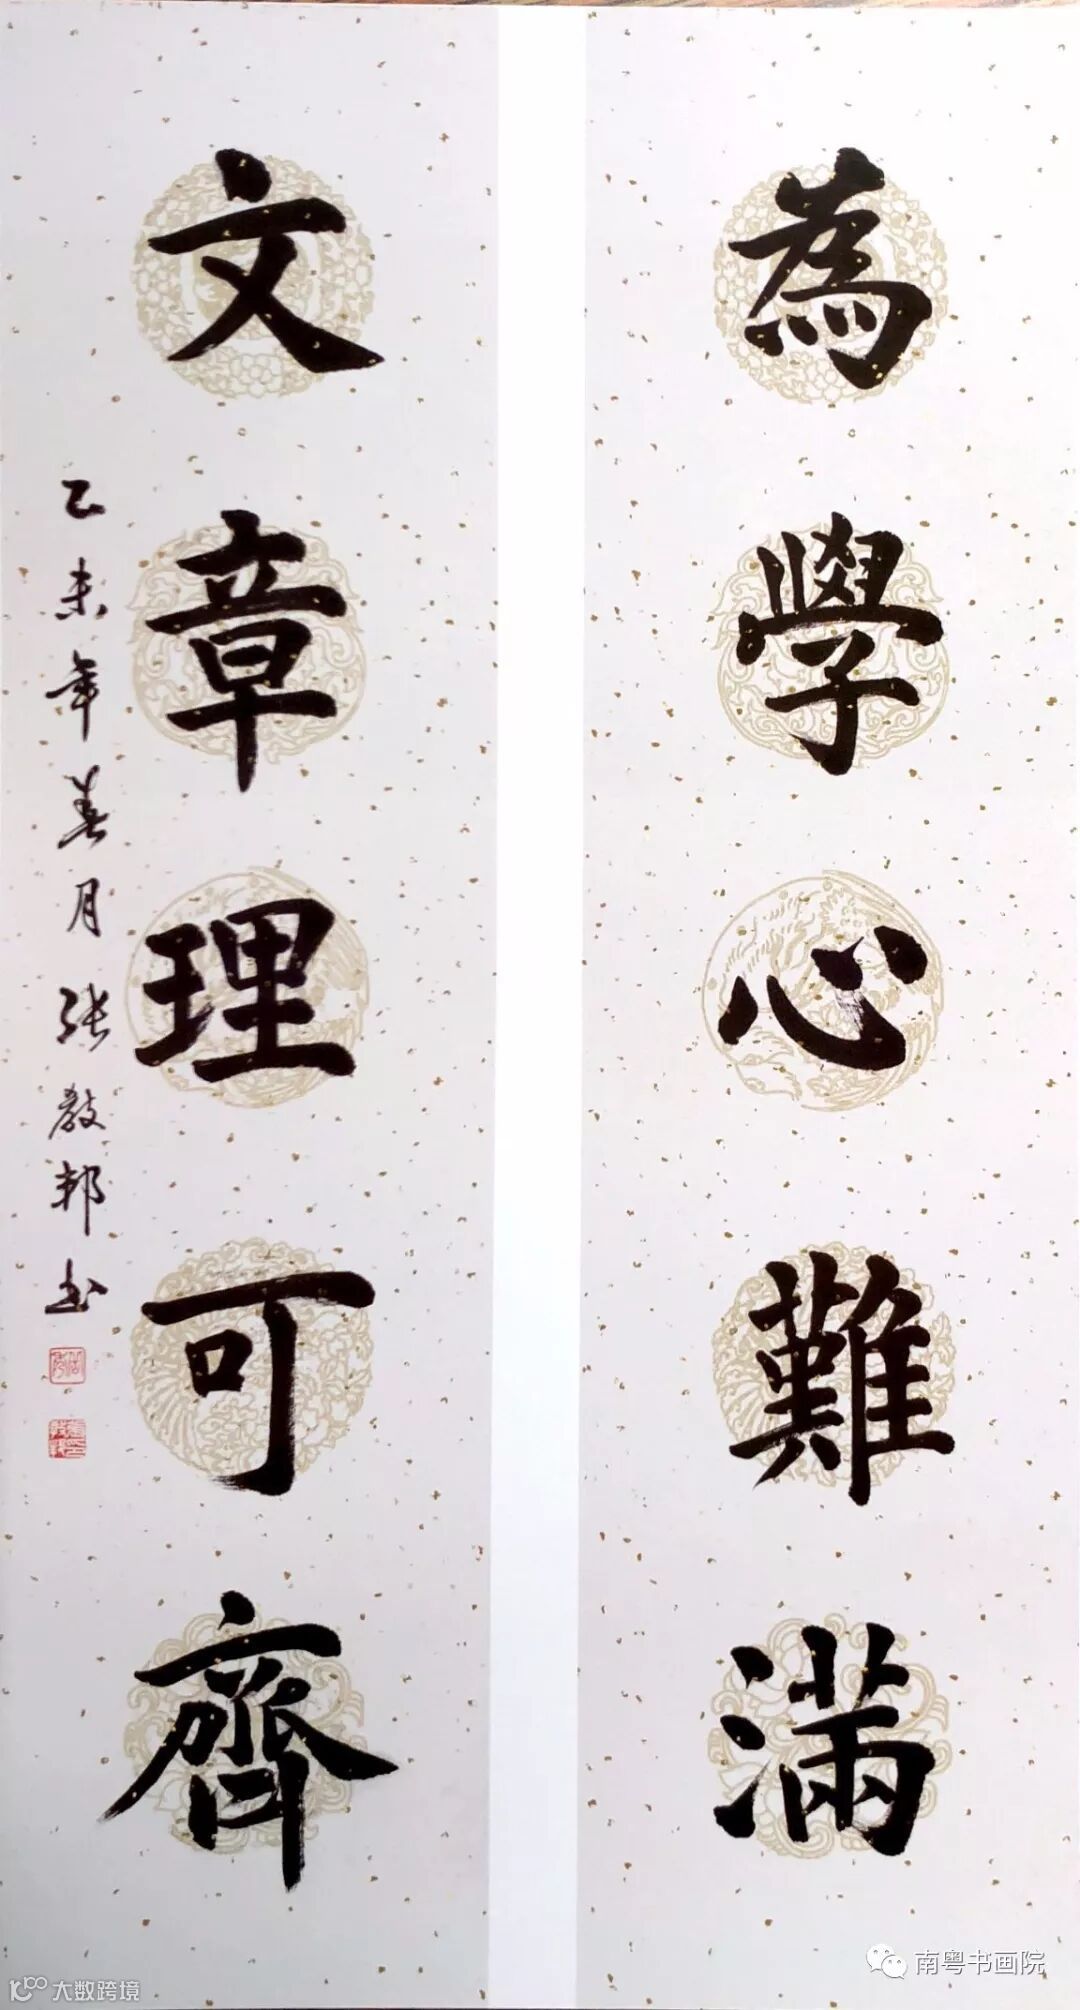 為學心難滿
文章理可齊
乙未年春月張敬邦书
南粤书画院
大数跨境